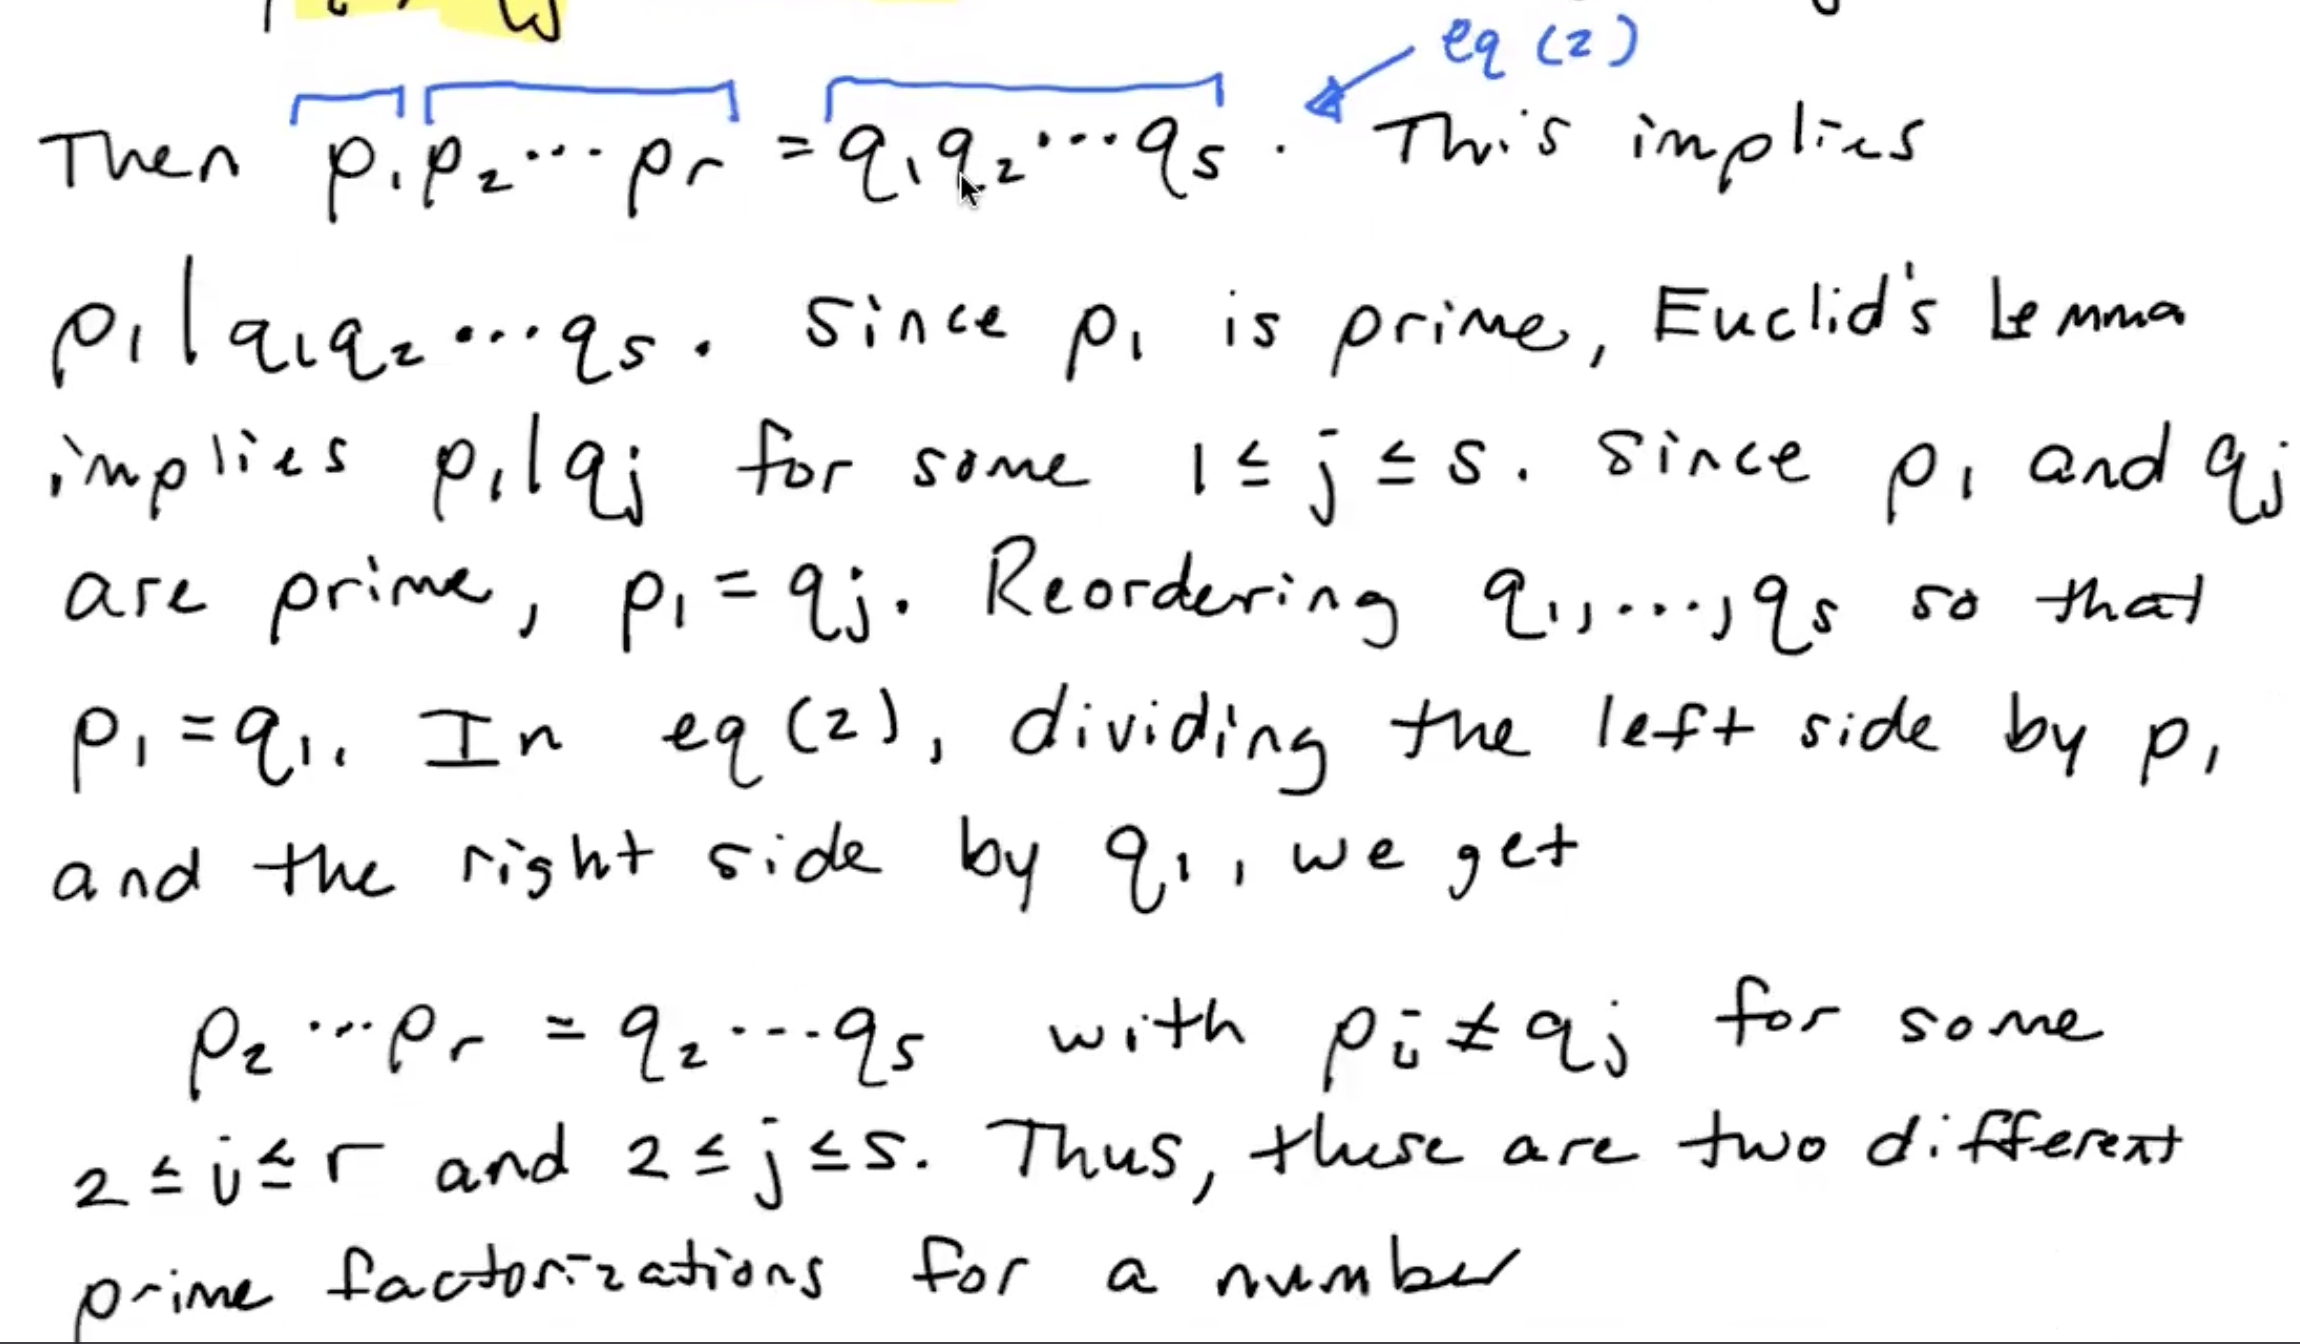 eq (2)
Then p₁p₂···pᵣ = q₁q₂···qₛ. This implies
p₁|q₁q₂···qₛ. Since p₁ is prime, Euclid's Lemma
implies p₁|qⱼ for some 1≤j≤s. Since p₁ and qⱼ
are prime, p₁=qⱼ. Reordering q₁,...,qₛ so that
p₁=q₁. In eq(2), dividing the left side by p₁
and the right side by q₁, we get
p₂···pᵣ = q₂···qₛ with pᵢ≠qⱼ for some
2≤i≤r and 2≤j≤s. Thus, these are two different
prime factorizations for a number